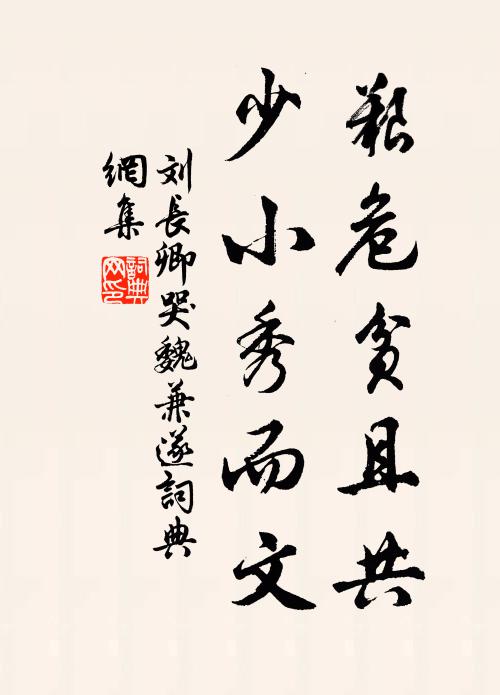 艱危貧且共
少小秀而文
刘長卿哭魏兼遂詞典
網集
詞典
网印